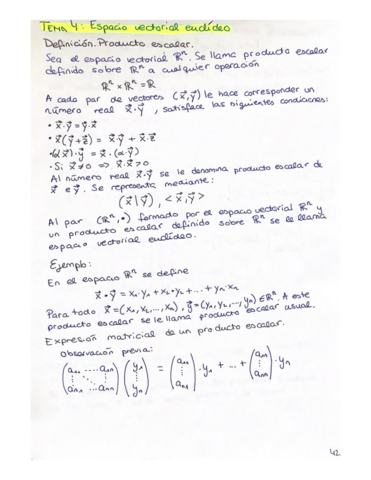 TEMA 4: Espacio vectorial euclídeo
Definición. Producto escalar.
Sea el espacio vectorial ℝⁿ. Se llama producto escalar
definido sobre ℝⁿ a cualquier operación
ℝⁿ × ℝⁿ = ℝ
A cada par de vectores (x⃗,y⃗) le hace corresponder un
número real x⃗·y⃗, satisface las siguientes condiciones:
• x⃗·y⃗ = y⃗·x⃗
• x⃗(y⃗+z⃗) = x⃗·y⃗ + x⃗·z⃗
• (αx⃗)·y⃗ = x⃗·(α·y⃗)
• Si x⃗≠0 => x⃗·x⃗>0
Al número real x⃗·y⃗ se le denomina producto escalar de
x⃗ e y⃗. Se representa mediante:
(x⃗|y⃗), <x⃗,y⃗>
Al par (ℝⁿ,•) formado por el espacio vectorial ℝⁿ y
un producto escalar definido sobre ℝⁿ se le llama
espacio vectorial euclídeo.
Ejemplo:
En el espacio ℝⁿ se define
x⃗•y⃗ = x₁·y₁ + x₂·y₂ + ... + yₙ·xₙ
Para todo x⃗=(x₁,x₂,...,xₙ), y⃗=(y₁,y₂,...,yₙ)∈ℝⁿ. A este
producto escalar se le llama producto escalar usual.
Expresión matricial de un producto escalar.
Observación previa:
(a₁₁ ... a₁ₙ ⋮ ⋮ aₙ₁ ... aₙₙ)(y₁ ⋮ yₙ) = (a₁₁ ⋮ aₙ₁)·y₁ + ... + (a₁ₙ ⋮ aₙₙ)·yₙ
42